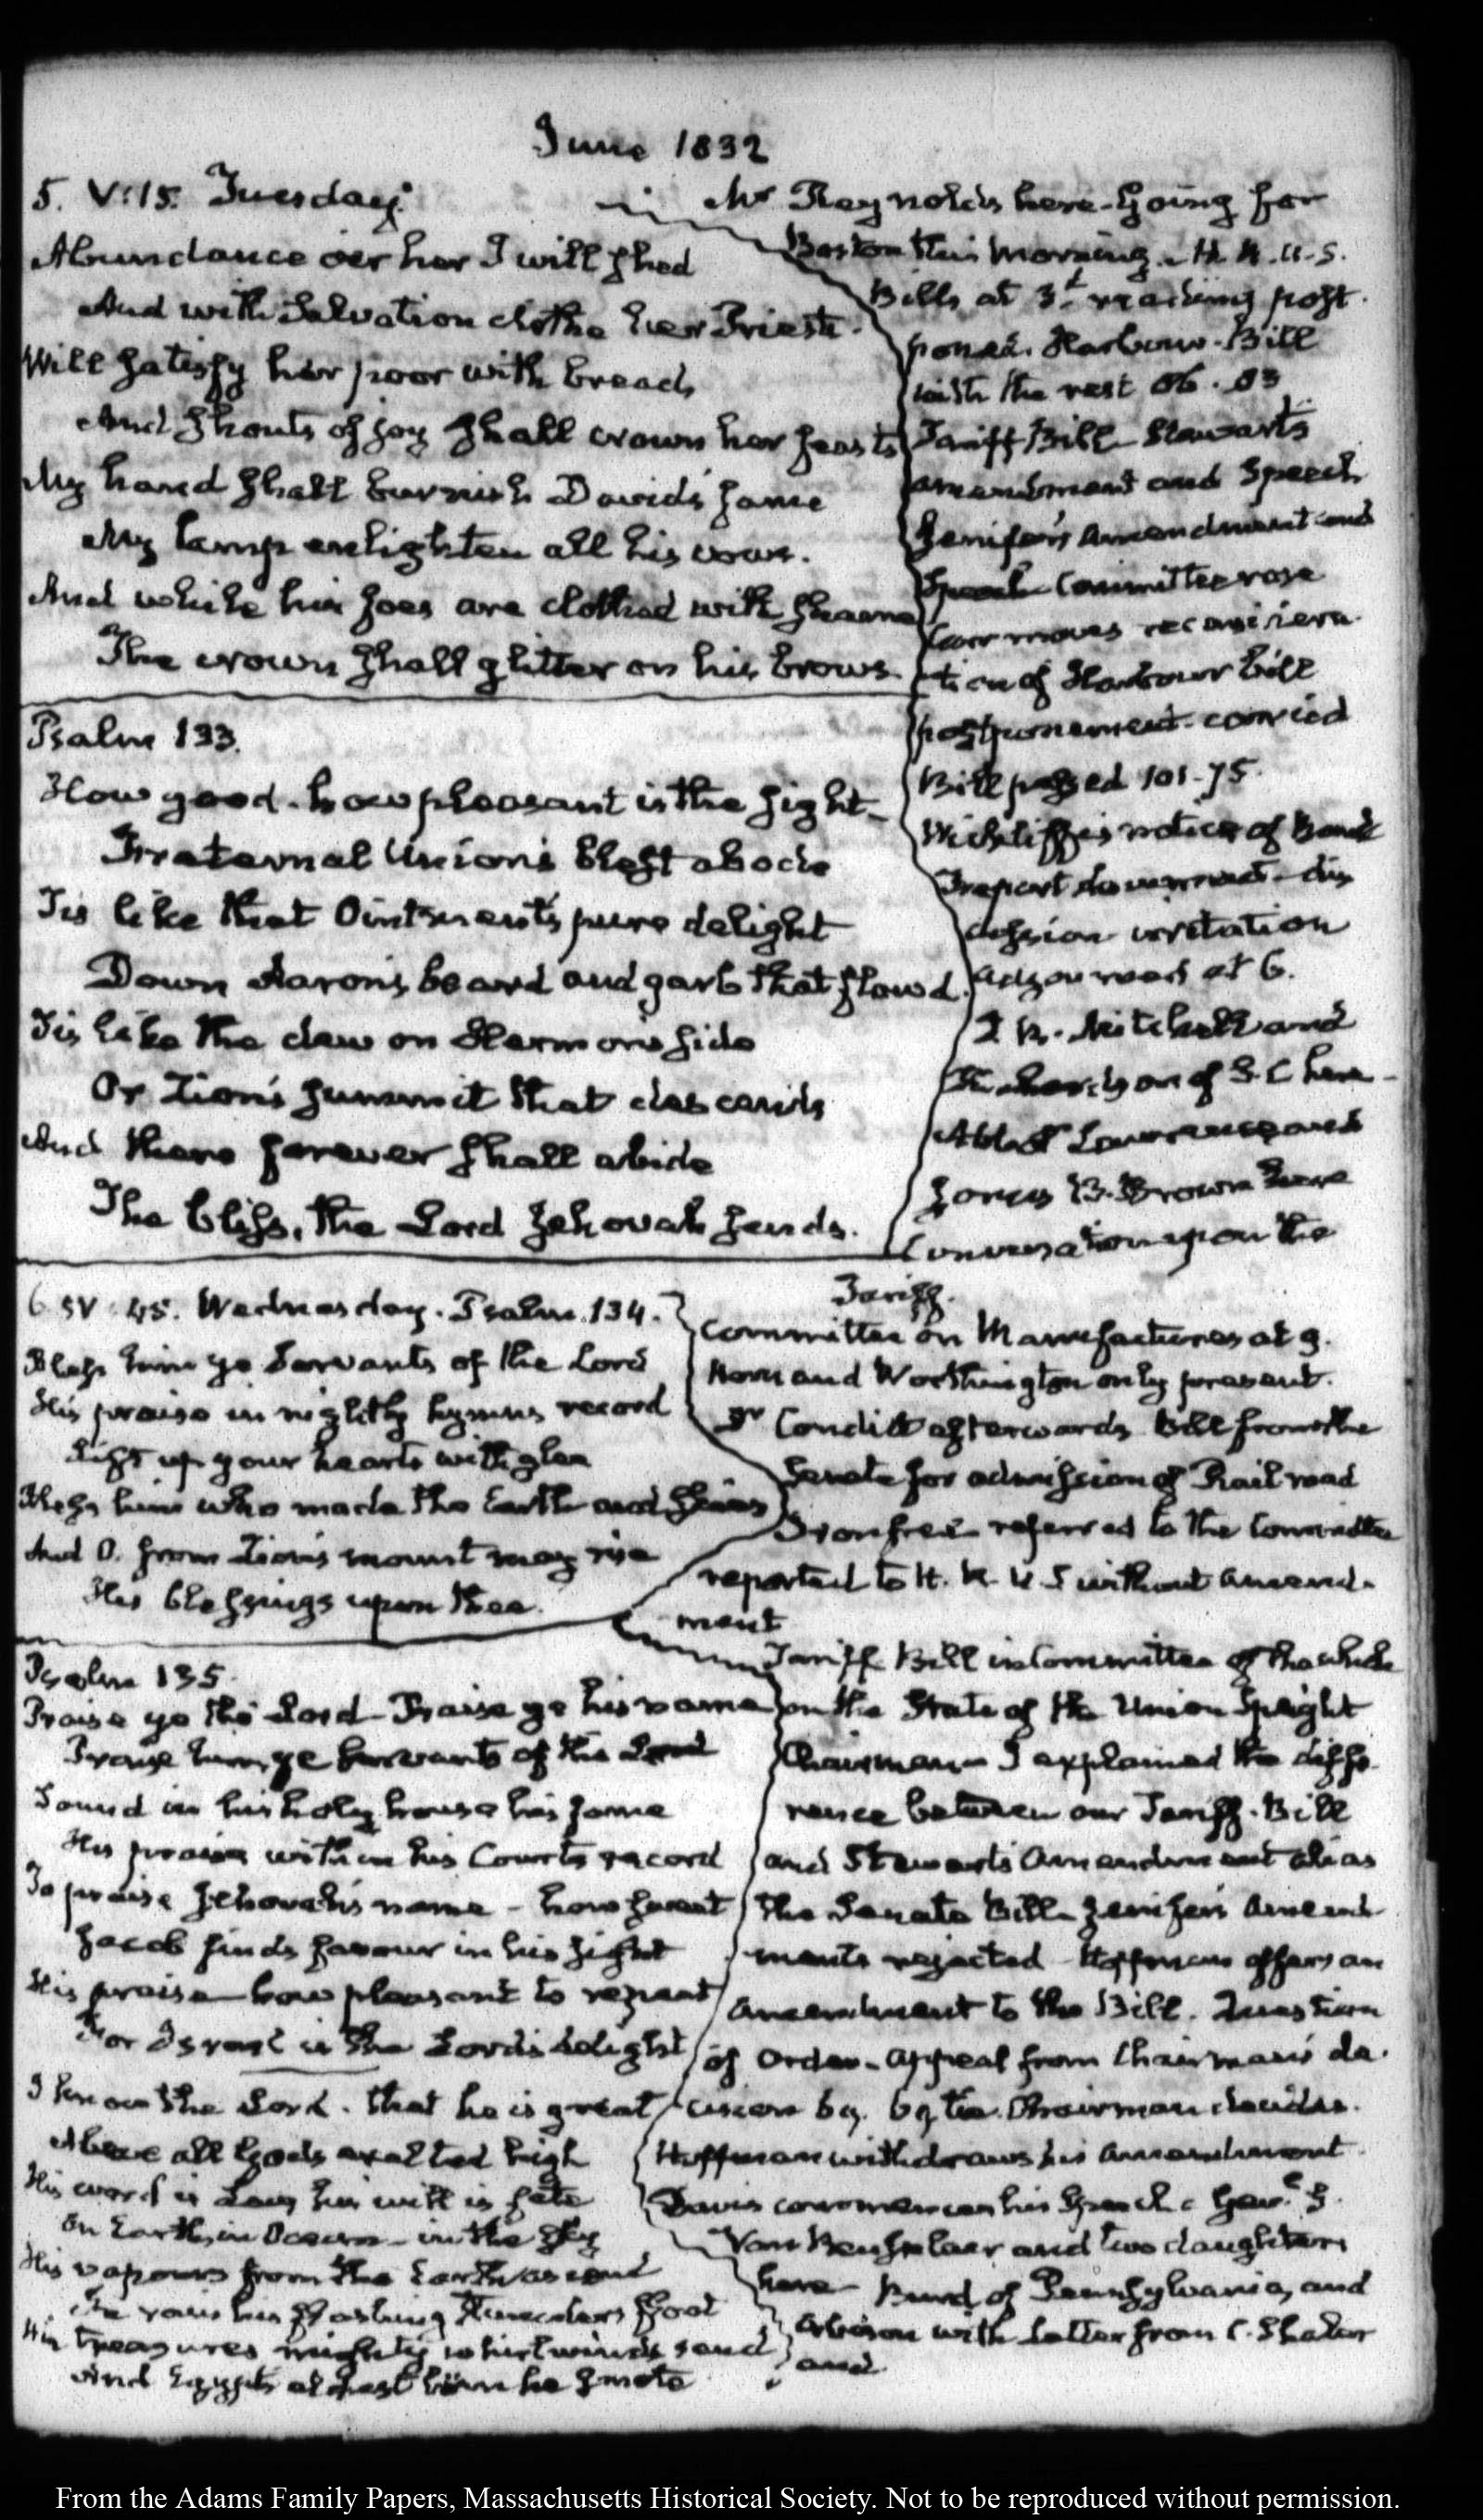 June 1832
5. V:15. Tuesday.
Abundance o'er her I will shed
And with Salvation clothe her Priests.
Will satisfy her poor with bread,
And shouts of joy shall crown her feasts
My hand shall burnish David's fame
My lamp enlighten all his vows.
And while his foes are clothed with shame
The crown shall glitter on his brows.
Mr Reynolds here. Going for
Boston this morning. H. R. U.S.
Bills at 3d reading post
poned. Harbour Bill
with the rest 86. 83
Tariff Bill Stewart's
amendment and Speech
Jenifer's Amendment and
Speech Committee rose
Carr moves reconsidera
tion of Harbour bill
postponement carried
Bill passed 101-75.
Wickliffe's notice of Bank
report dis
cussion irritation
adjourned at 6.
T. R. Mitchell and
of S.C here
Abbot Lawrence and
James B. Brown here
Conversation upon the
Tariff.
Psalm 133.
How good. how pleasant is the sight
Fraternal Union's blest abode
Tis like that Ointment's pure delight
Down Aaron's beard and garb that flow'd.
Tis like the dew on Hermon's side
Or Zion's summit that descends
And there forever shall abide
The bliss, the Lord Jehovah sends.
6 IV:45. Wednesday. Psalm. 134.
Bless him ye Servants of the Lord
His praise in nightly hymns record
Lift up your hearts with glee
Bless him who made the Earth and skies
And O. from Zion's mount may rise
His blessings upon thee.
Committee on Manufactures at 9.
Horn and Worthington only present.
Dr Condict afterwards. Bill from the
Senate for admission of Rail road
Iron free referred to the Committee
reported to H. R. U S without amend-
ment
Psalm 135.
Praise ye the Lord - Praise ye his name
Praise him, ye servants of the Lord
Sound in his holy house his fame
His praise within his Courts record
To praise Jehovah's name - how sweet
Jacob finds favour in his sight
His praise how pleasant to repeat
For Israel is the Lord's delight
I know the Lord. that he is great
Above all Gods exalted high
His word is Law, his will is fate
On Earth, in Ocean - in the sky
His vapours from the Earth ascend
In rain his flashing float
His treasures mighty whirlwinds send
And Egypt's eldest born he smote
Tariff Bill in Committee of the whole
on the State of the Union Speight
Chairman I explained the diffe-
rence between our Tariff. Bill
and Stewart's Amendment alias
the Senate Bill. Jenifer's Amend-
ments rejected Hoffman offers an
Amendment to the Bill. Question
of Order. Appeal from Chairman's de-
cision 69. 69 tie. Chairman decides.
Hoffman withdraws his amendment.
Davis commences his Speech. Genl. S.
Van Rensselaer and two daughters
here Burd of Pennsylvania, and
with letter from C. Shaler
and
From the Adams Family Papers, Massachusetts Historical Society. Not to be reproduced without permission.